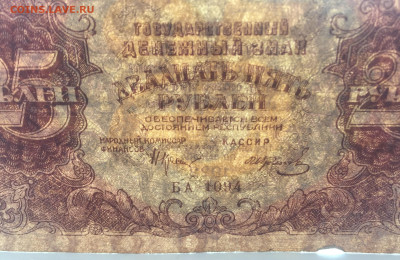 COINSS.SAVE.RU
ГОСУДАРСТВЕННЫЙ
ДЕНЕЖНЫЙ ЗНАК
25
ДВАДЦАТЬ ПЯТЬ
РУБЛЕЙ
РУБЛЕЙ
ОБЕСПЕЧИВАЕТСЯ ВСЕМ
ДОСТОЯНИЕМ РЕСПУБЛИКИ
НАРОДНЫЙ КОМИССАР
ФИНАНСОВ
КАССИР
БА 1094